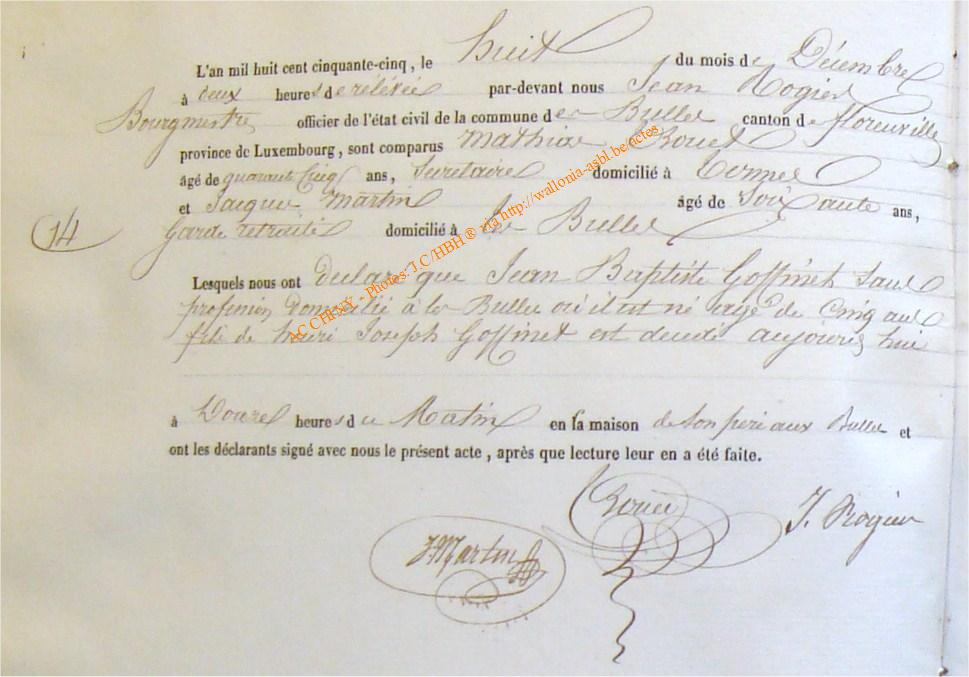 L'an mil huit cent cinquante-cinq, le huit du mois de Décembre
à deux heures de rélévée par-devant nous Jean Rogier
Bourgmestre officier de l'état civil de la commune des Bulles canton de florenville
province de Luxembourg, sont comparus Mathias Roué
âgé de quarante Cinq ans, Secretaire domicilié à termes
et Jacques Martin âgé de Soixante ans,
14
Garde retraité domicilié à les Bulles
Lesquels nous ont declaré que Jean Baptiste Goffinet Sans
profession, Domicilié à les Bulles où il est né agé de Cinq ans
fils de henri Joseph Goffinet est decedé aujourd'hui
à Douze heures du Matin en la maison de son pere aux Bulles et
ont les déclarants signé avec nous le présent acte, après que lecture leur en a été faite.
Roué J. Rogier
J. Martin
AC CHINY - Photos: J.C/HBH ® via http://wallonia-asbl.be/actes